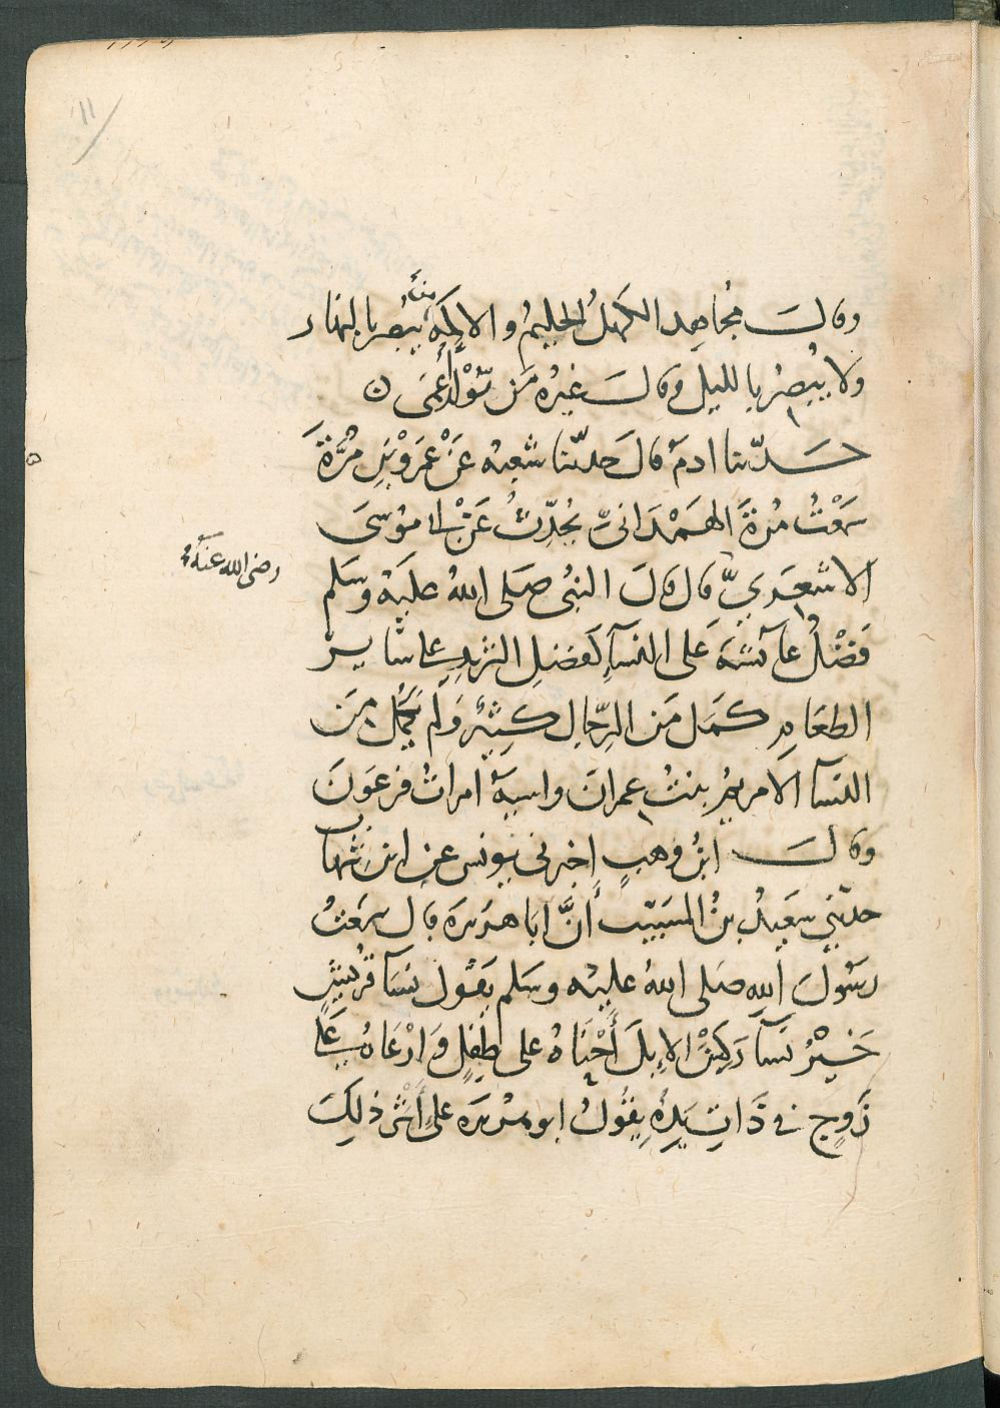 ١١
وقالَ مُجاهِد الكَهلُ الحليمُ والاكمَهُ مَنْ يُبْصِر بالنهار
ولا يُبْصِرُ بالليل وقالَ غيرُه مَن يُّوْلَدُ أَعْمَى ن
حدّثنا ادمَ قالَ حدثنا شعبه عَنْ عَمْرِو بْنِ مُرَّةَ
سَمِعْتُ مُرةَ الهَمْدَانىَّ يُحَدِّثُ عَنْ ابى مُوْسىَ
الاشعَرِيّ قال قالَ النبىُ صَلى اللهُ عليَهْ وسَلم
رضى الله عنه
فَضْلُ عآئشةَ عَلى النسَآءِ كفضلِ الثرِيدِ على سَايرِ
الطعَامِ كمَل مَن الرِّجالِ كثِيْرٌ وَلَم يَكْمُل مِنَ
النسَآ الا مريمُ بنتُ عمرانَ واسيةُ امراتُ فرعَونَ
وقالَ ابنُ وهبٍ اخبرنى يونس عن ابن شهاب
حدثنِى سَعِيدُ بنُ المسَيّبِ أنَّ ابَا هريرَه قال سَمِعْتُ
رسُولَ اللهِ صَلى اللهُ عليْه وسَلم يقُول نسَآ قُرَيشٍ
خَيْرُ نسَآ رَكِبْنَ الابِلَ أَحْنَاهُ على طِفلٍ وَارْعَاهُ عَلى
زَوجٍ فى ذَاتِ يَدِهِ يقُولُ ابو هُريرَه على أَثَرِ ذلِكَ